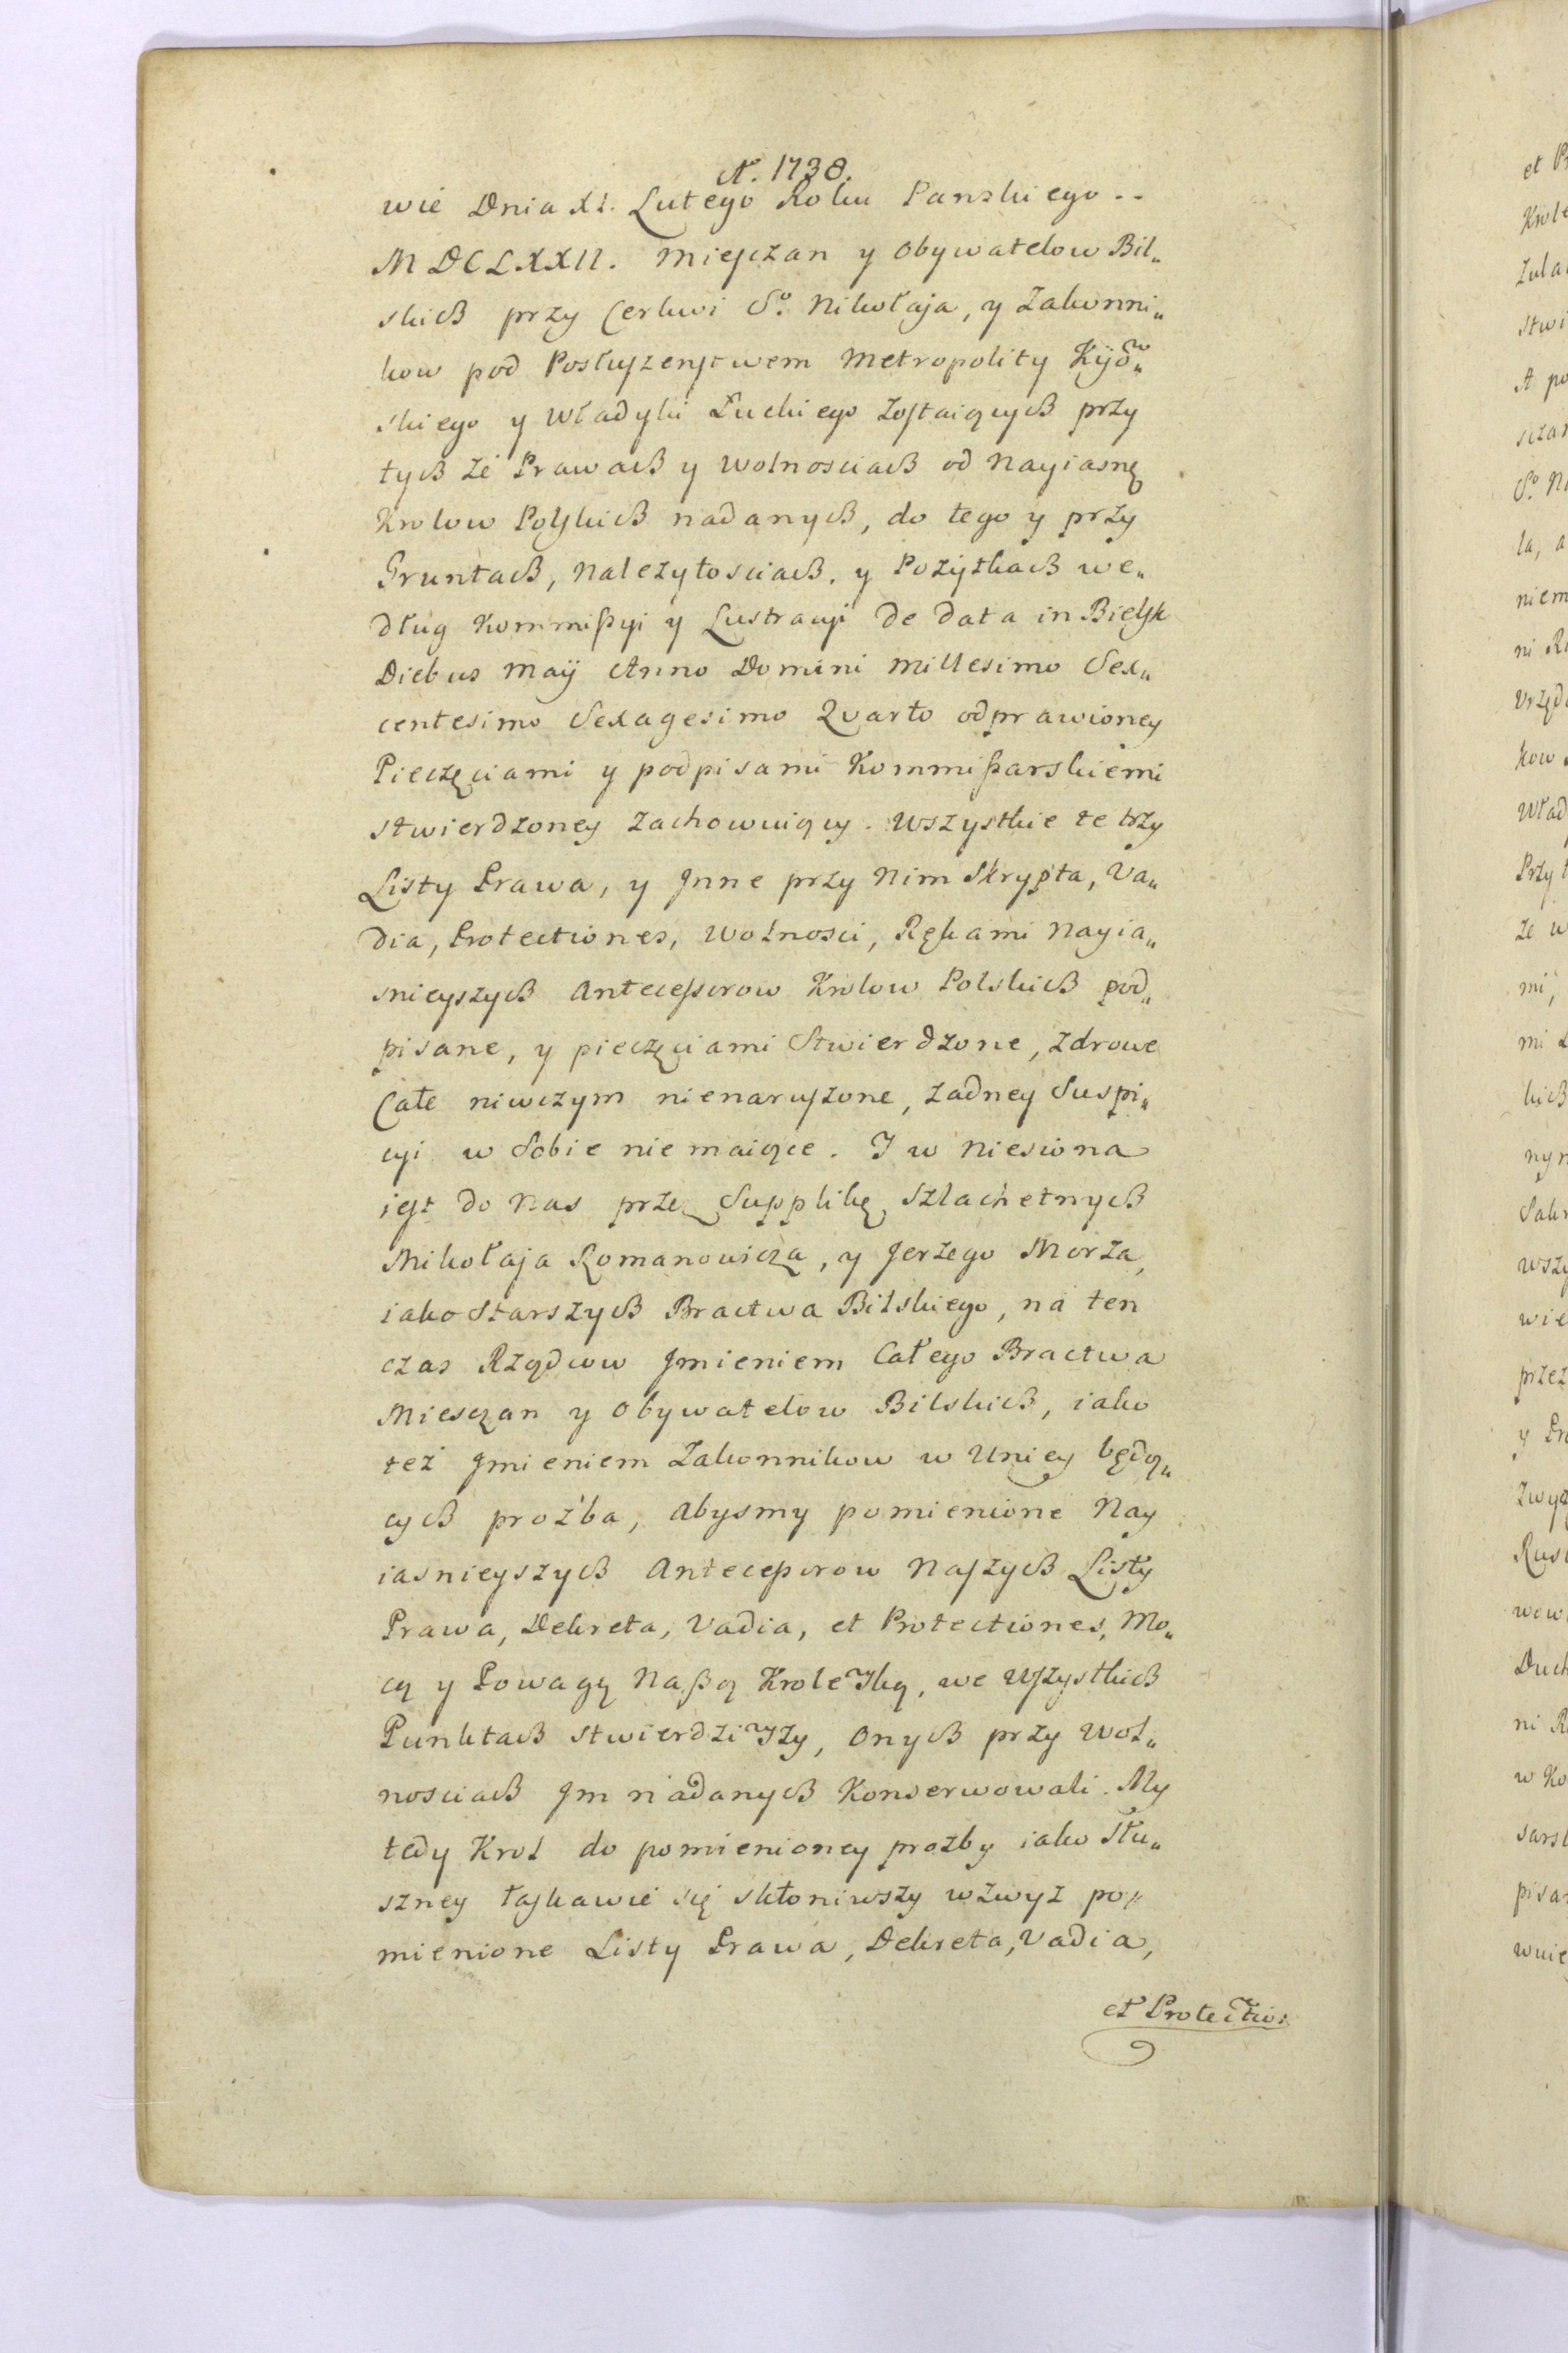 A. 1738.
wie Dnia XI. Lutego Roku Panskiego --
MDCLXXII. Mieyszan y Obywatelow Bil„
skich przy Cerkwi So. Nikołaja, y Zakonni„
kow pod Posłuszenstwem Metropolity Kÿow„
skiego y Władyki Łuckiego zostaiących przy
tych że Prawach y Wolnosciach od Nayiasnę
Krolow Polskich nadanych, do tego y przy
Gruntach, Należytosciach, y Pożytkach we„
dług Kommissyi y Lustracyi de data in Bielsk
Diebus Maÿ Anno Domini Millesimo Sex„
centesimo Sexagesimo Quarto odprawioney
Pieczęciami y podpisami Kommissarskiemi
stwierdzoney zachowuiący. Wszystkie te trzy
Listy Prawa, y Jnne przy Nim Skrypta, Va„
dia, Protectiones, Wolnosci, Rękami Nayia„
snieyszych Antecessorow Krolow Polskich pod„
pisane, y pieczęciami Stwierdzone, zdrowe
Całe niwczym nienaruszone, żadney Suspi„
cyi w Sobie nie maiące. I w niesiona
iest do Nas prze Supplikę Szlachetnych
Mikołaja Romanowicza, y Jerzego Morza,
iako Starszych Bractwa Bilskiego, na ten
czas Rządcow Jmieniem Całego Bractwa
Miesczan y Obywatelow Bilskich, iako
też Jmieniem Zakonnikow w Uniey będą„
cych proźba, abysmy pomienione Nay
iasnieyszych Antecessorow Naszych Listy
Prawa, Dekreta, Vadia, et Protectiones, Mo„
cą y Powagą Naszą Krolewską, we Wszystkich
Punktach stwierdziwszy, Onych przy Wol„
nosciach Jm nadanych Konserwowali. My
tedy Krol do pomienioney prozby iako Słu„
szney łaskawie się skłoniwszy wzwyż po„
mienione Listy Prawa, Dekreta, Vadia,
et Protectio: